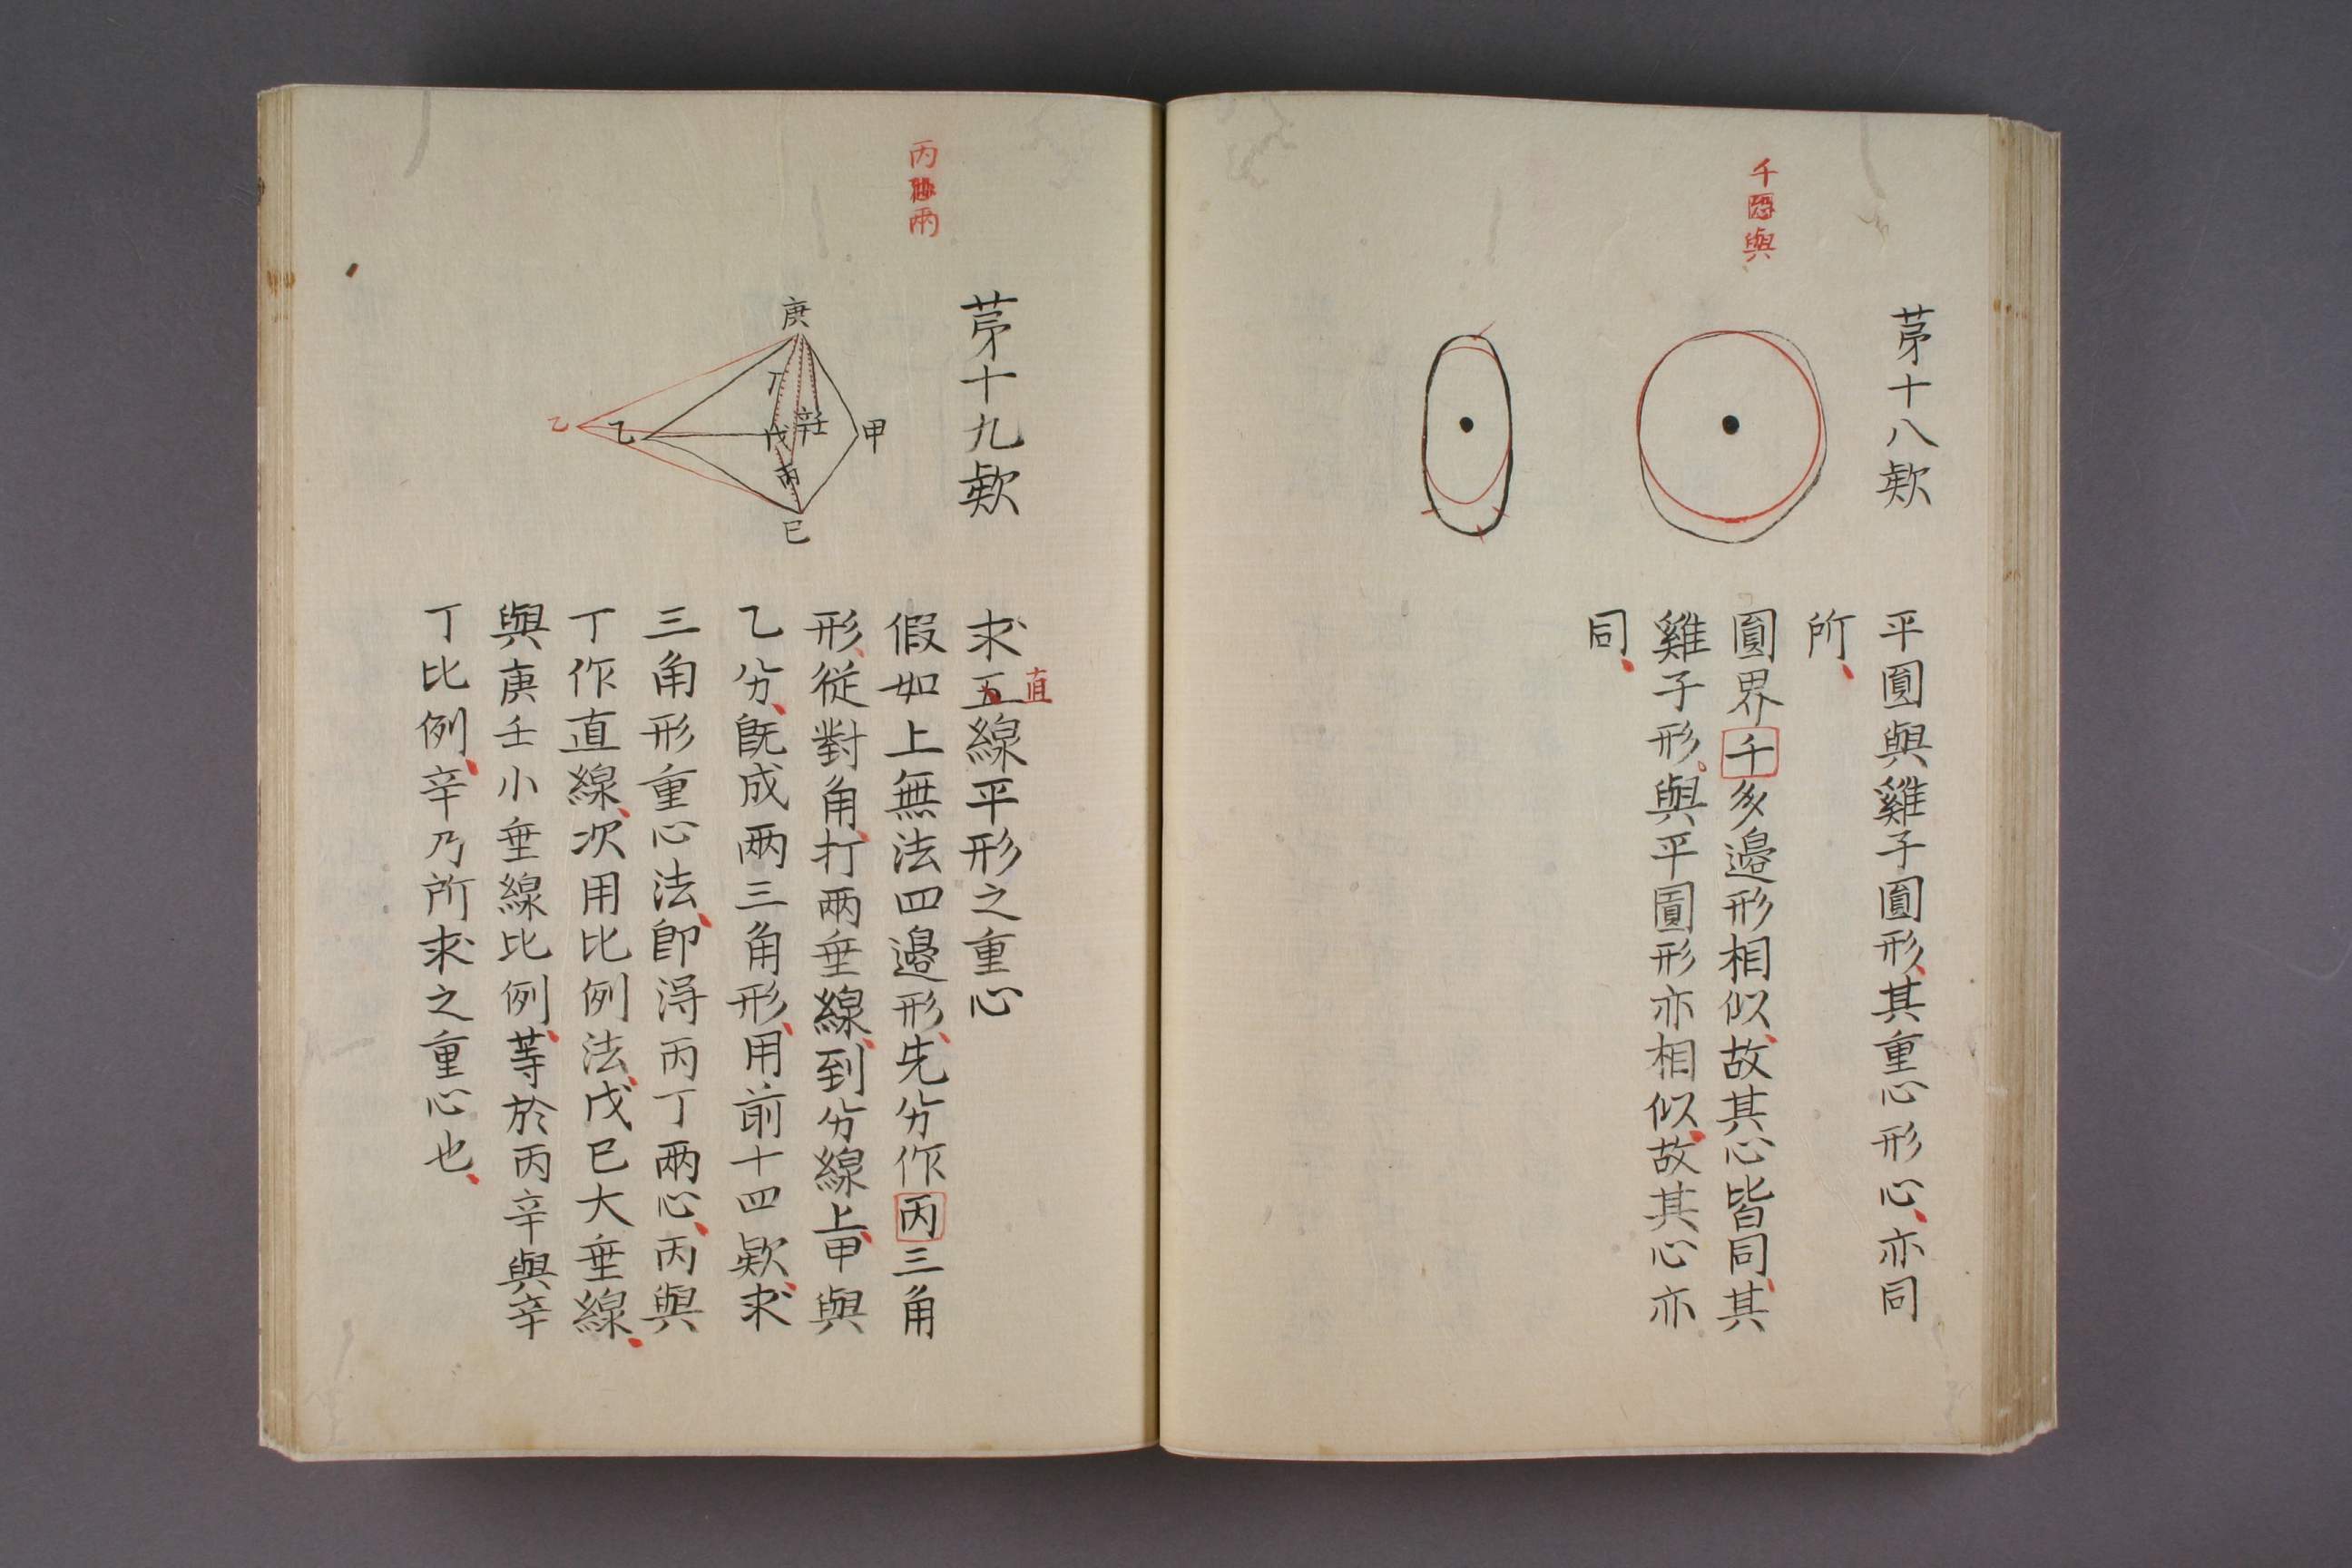 千恐與
苐十八欵
平圓與雞子圓形其重心形心亦同
所
圓界千多邉形相似故其心皆同其
雞子形與平圓形亦相似故其心亦
同
丙恐兩
苐十九欵
庚
丁
辛
壬
甲
乙
乙
戊
丙
巳
求五線平形之重心
直
假如上無法四邉形先分作丙三角
形從對角打兩垂線到分線上甲與
乙分既成兩三角形用前十四欵求
三角形重心法即淂丙丁兩心丙與
丁作直線次用比例法戊巳大垂線
與庚壬小垂線比例等於丙辛與辛
丁比例辛乃所求之重心也